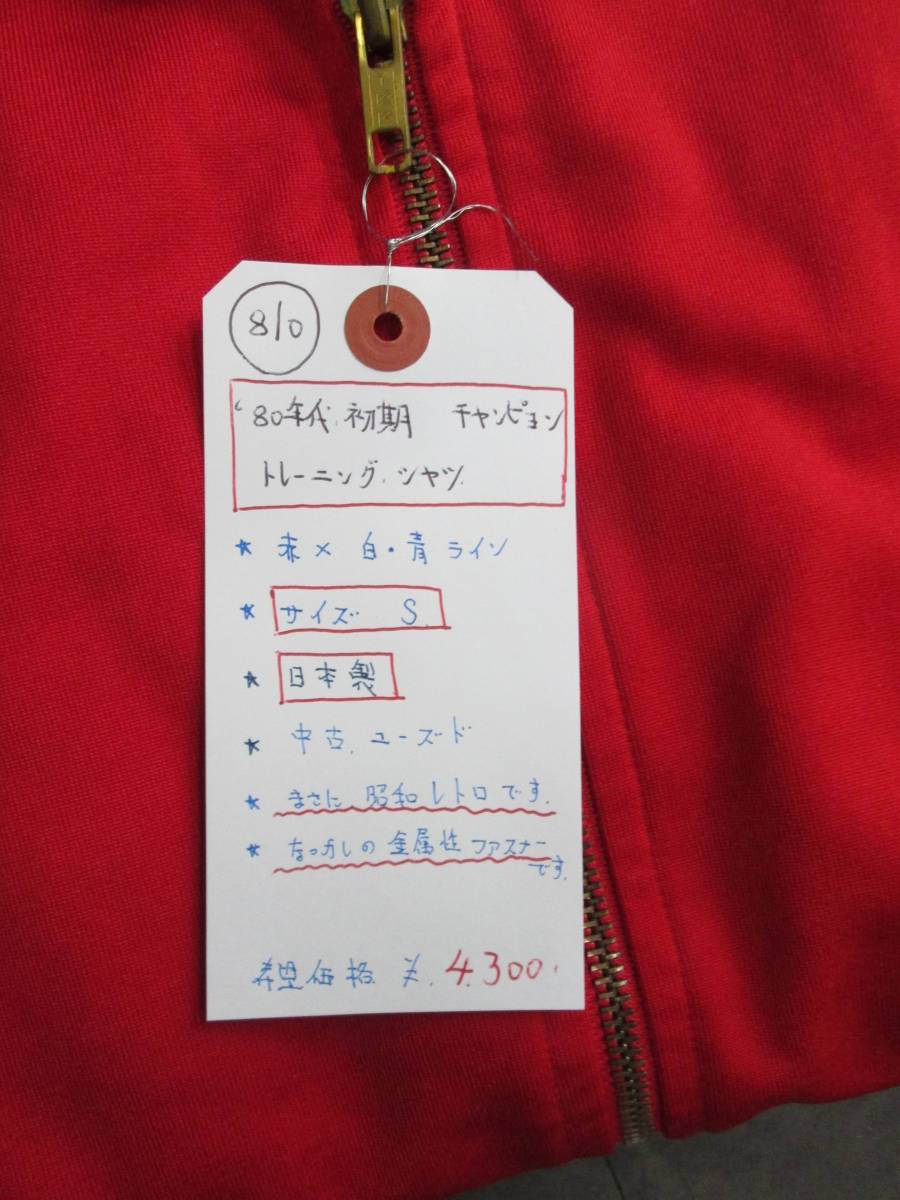 810
'80年代 初期 チャンピョン
トレーニング.シャツ.
★ 赤×白・青ライン
★ サイズ S.
★ 日本製
★ 中古.ユーズド
★ まさに、昭和レトロです.
★ なつかしの金属性ファスナー
です.
希望価格 ¥.4.300.